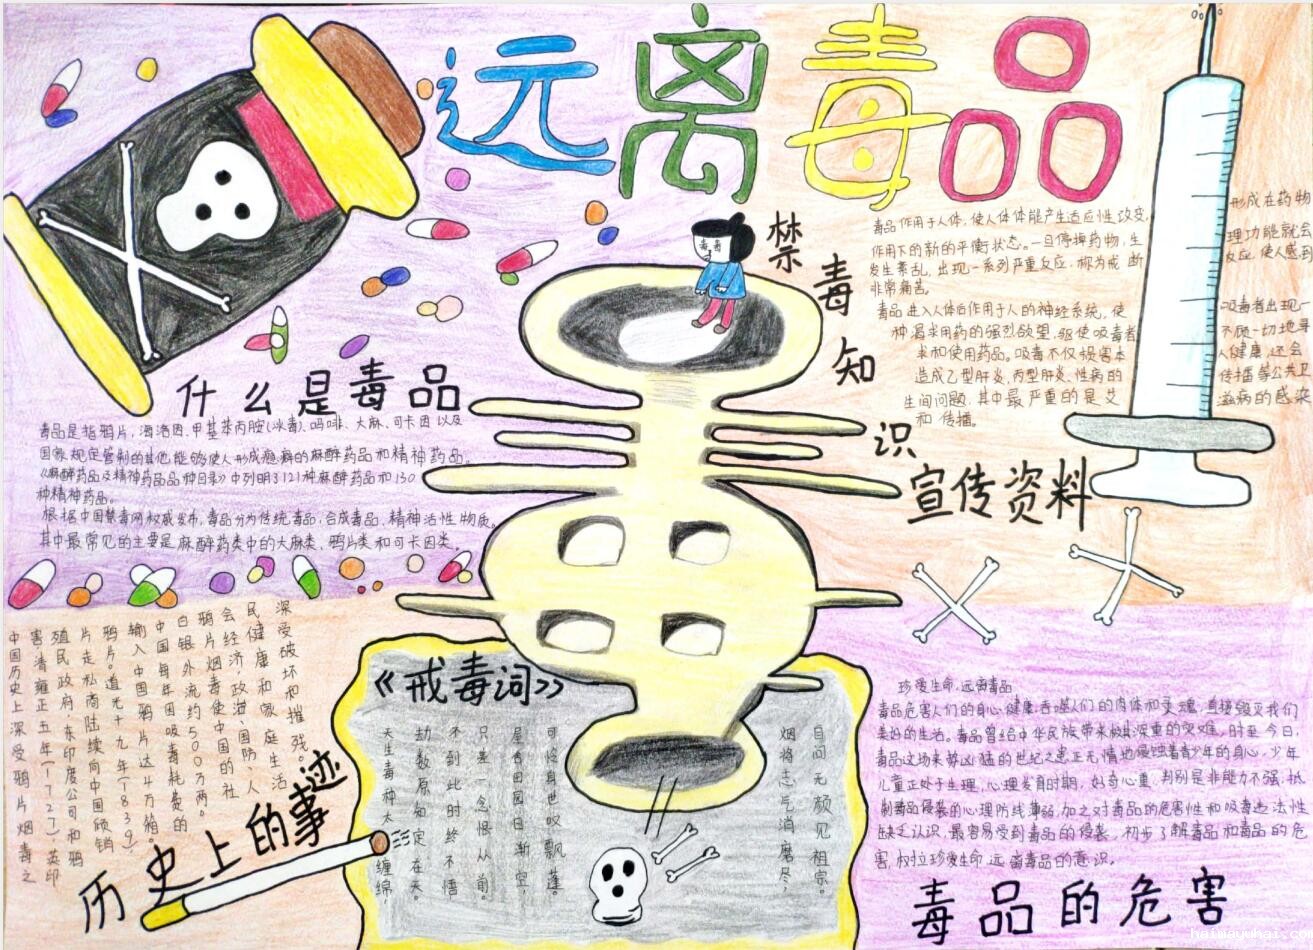 远离毒品
什么是毒品
毒品是指鸦片，海洛因，甲基苯丙胺（冰毒），吗啡、大麻、可卡因以及
国家规定管制的其他能够使人形成瘾癖的麻醉药品和精神药品。
《麻醉药品及精神药品品种目录》中列明了121种麻醉药品和130
种精神药品。
根据中国禁毒网权威发布，毒品分为传统毒品，合成毒品，精神活性物质。
其中最常见的主要是麻醉药类中的大麻类、鸦片类和可卡因类。
禁毒知识
宣传资料
毒品作用于人体，使人体体能产生适应性改变，形成在药物
作用下的新的平衡状态。一旦停掉药物，生理功能就会
发生紊乱，出现一系列严重反应，称为戒断反应，使人感到
非常痛苦。
毒品进入人体后作用于人的神经系统，使吸毒者出现一
种渴求用药的强烈欲望，驱使吸毒者不顾一切地寻
求和使用药品。吸毒不仅损害本人健康，还会
造成乙型肝炎，丙型肝炎、性病的传播等公共卫
生间问题，其中最严重的是艾滋病的感染
和传播。
深受破坏和摧残。
民健康和家庭生活
会经济，政海、国防、人
鸦片烟毒使中国的社
白银外流约500万两。
中国每年因吸毒耗费的
输入中国鸦片达4万箱。
鸦片。道光十九年（1839），
片走私商陆续向中国倾销
殖民政府，东印度公司和鸦
害清雍正五年（1727），英印
中国历史上深受鸦片烟毒之
历史上的事迹
《戒毒词》
自问无颜见祖宗。
烟将志气消磨尽，
可怜身世叹飘蓬。
是否田园日渐空，
只差一念恨从前。
不到此时终不悟
劫数原知定在天。
天生毒种太缠绵，
珍爱生命，远离毒品
毒品危害人们的身心健康，吞噬人们的肉体和灵魂，直接毁灭我们
美好的生活。毒品曾给中华民族带来极其深重的灾难，时至今日，
毒品这场来势凶猛的世纪之患正无情地侵蚀着青少年的身心，少年
儿童正处于生理，心理发育时期，好奇心重，判别是非能力不强，抵
制毒品侵袭的心理防线薄弱，加之对毒品的危害性和吸毒违法性
缺乏认识，最容易受到毒品的侵袭。初步了解毒品和毒品的危
害，树立珍爱生命，远离毒品的意识。
毒品的危害